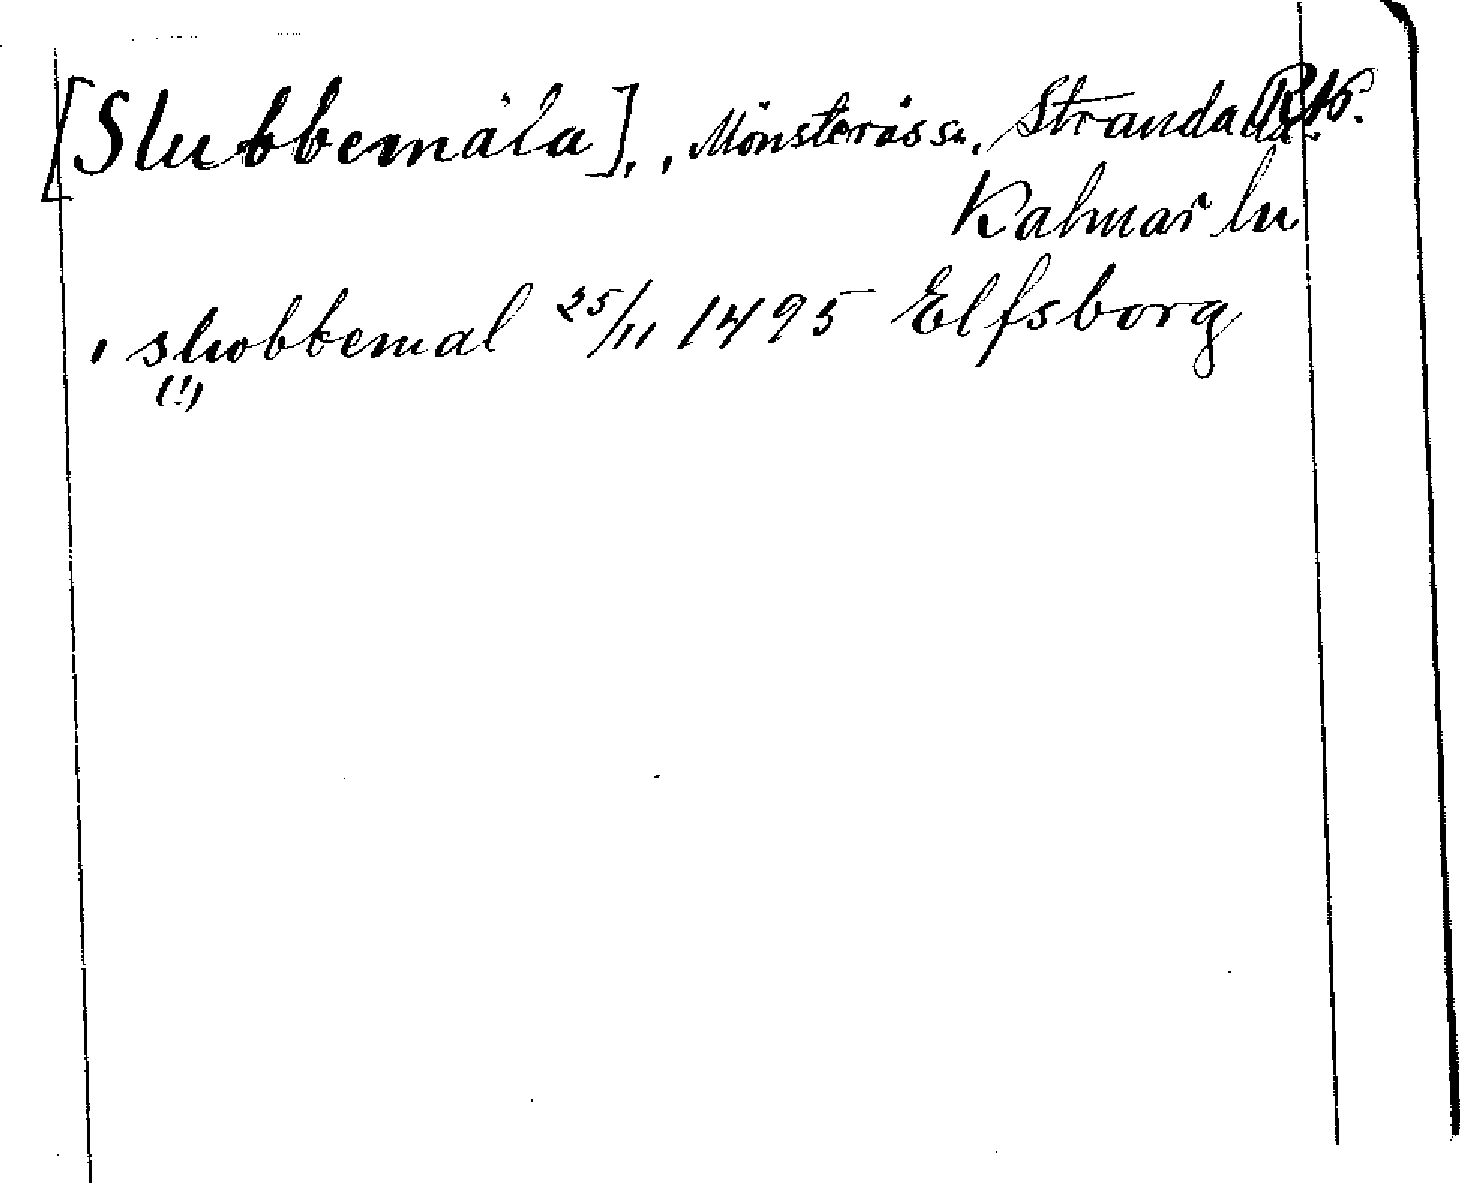 [Slubbemåla], , Mönsterås sn, Stranda hd. RAp.
Kalmar ln
, slwobbemal 25/11 1495 Elfsborg
(!)